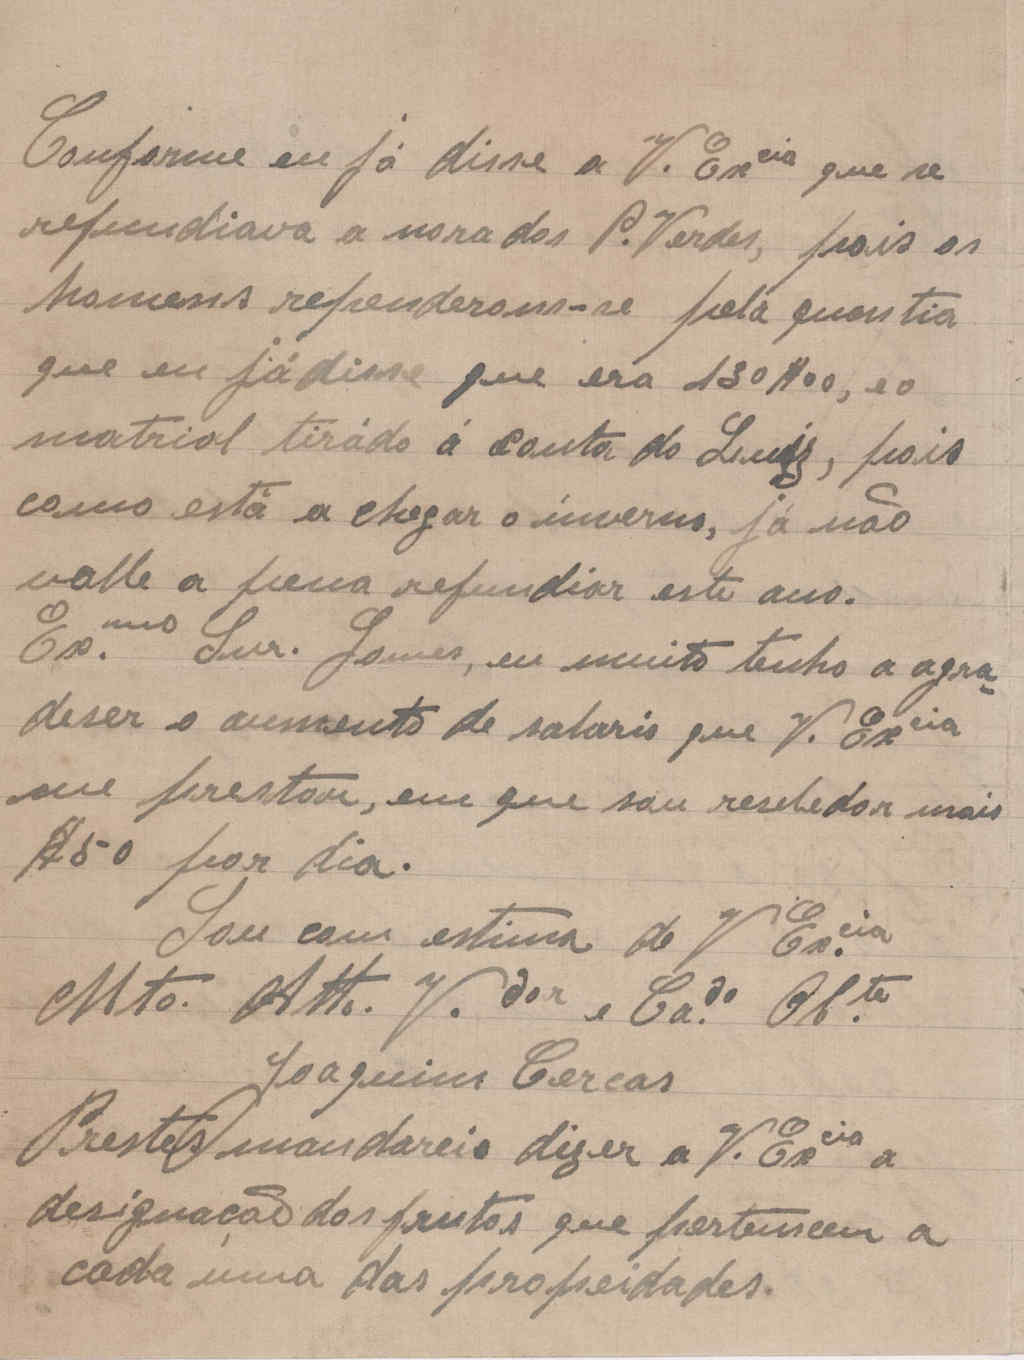 Conforme eu já disse a V. Ex.cia que se
refundiava a nora dos P. Verdes, pois os
homens rependerom-se pela quontia
que eu já disse que era 130$00, e o
matriol tirádo á conta do Luiz, pois
como está a chegar o inverno, já não
valle a pena refundiar este ano.
Ex.mo Snr. Gomes, eu muito tenho a agra-
deser o aumento de salario que V. Excia
me prestou, em que sou resebedor mais
$50 por dia.
Sou com estima de V Ex.cia
Mto. Atto. V.dor e Ca.do Ob.te
Joaquim Cercas
Prestes mandareio dizer a V. Excia a
designação dos frutos que pertencem a
cada uma das propeidades.